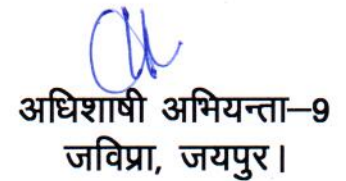 अधिशाषी अभियन्ता–9
जविप्रा, जयपुर।